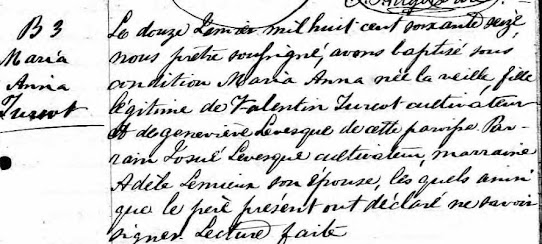 B 3
Maria
Anna
Turcot
Le douze Fevrier mil huit cent soixante seize
nous prêtre soussigné, avons baptisé sous
condition Maria Anna née la veille, fille
légitime de Valentin Turcot cultivateur
et de geneviève Levesque de cette paroisse Par-
rain Josué Levesque cultivateur, marraine
Adèle Lemieux son épouse, les quels ainsi
que le père présent ont déclaré ne savoir
signer Lecture faite